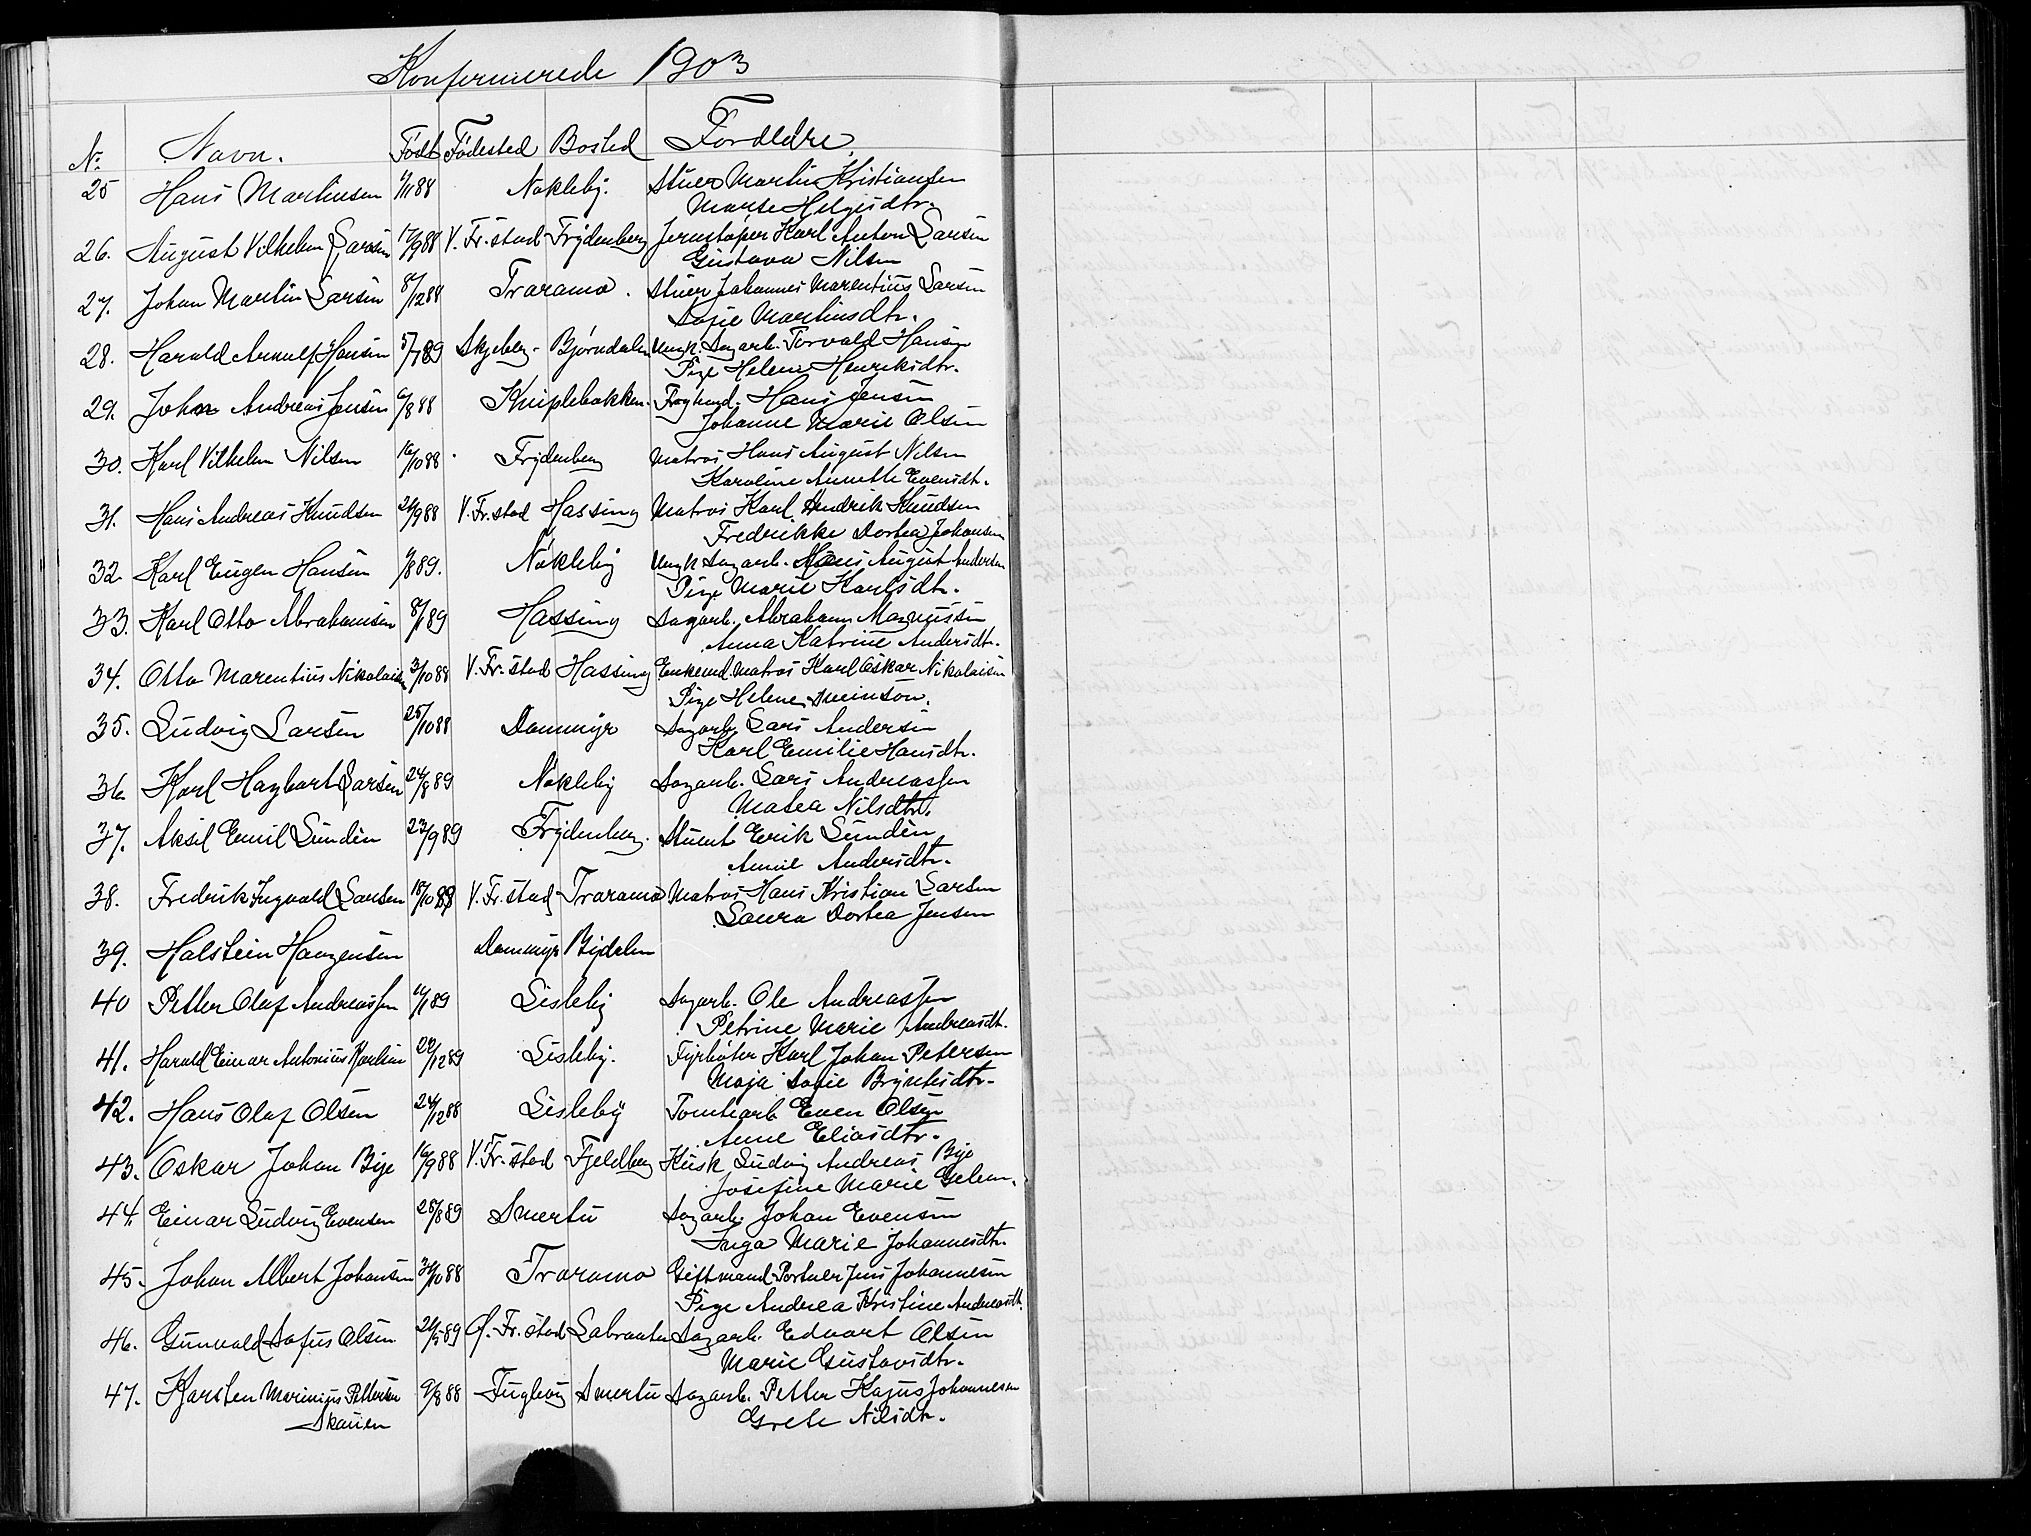 Konfirmerede 1903
No. Navn. Født Fødested Bosted Forældre
25 Hans Martinsen 9/11 88 Nøkleby. Stuer Martin Kristiansen
Marte Helgesdtr.
26. August Vilhelm Larsen 17/9 88 V. Fr.stad Frydenberg Jernstøper Karl Anton Larsen
Gustava Nilsen
27. Johan Martin Larsen 8/12 88 Traramo. Stuer Johannes Marentius Larsen
Sofie Martinsdtr.
28. Harald Arnulf Hansen 5/7 89 Skjeberg Bjørndalen Ungk. Sagarb. Torvald Hansen
Pige Helene Henriksdtr.
29. John Andreas Jensen 6/8 88 Kniplebakken. Hans Jensen
Johanne Marie Olsen
30. Karl Vilhelm Nilsen 16/10 88 Frydenberg Matros Hans August Nilsen
Karoline Annette Evensdtr.
31. Hans Andreas Knudsen 26/9 88 V. Fr.stad Hassing Matros Karl Hendrik Knudsen
Fredrikke Dortea Johansen
32. Karl Eugen Hansen 9/8 89. Nøkleby Ungk Sagarb. Hans August Andersen
Pige Marie Karlsdtr.
33. Karl Otto Abrahamsen 8/1 89 Hassing Sagarb. Abraham Magnussen
Anna Katrine Andersdtr.
34. Otto Marentius Nikolaisen 3/10 88 V. Fr.stad Hassing Enkemd. Matros Karl Oskar Nikolaisen
Pige Helene Sveinson.
35. Ludvig Larsen 25/10 88 Dammyr Sagarb. Lars Andersen
Karl Emilie Hansdtr.
36. Karl Hagbart Larsen 24/8 89 Nøkleby Sagarb. Lars Andreassen
Matea Nilsdtr.
37. Aksel Emil Sundèn 23/9 89 Frydenberg. Erik Sundèn
Annie Andersdtr.
38. Fredrik Ingvald Larsen 18/10 88 V. Fr.stad Traramo Matros Hans Kristian Larsen
Laura Dortea Jensen
39. Halstein Haugensen Dammyr Bydelen
40 Petter Olaf Andreassen 10/1 89 Lisleby Sagarb. Ole Andreassen
Petrine Marie Andreasdtr.
41. Harald Einar Antonius Karlsen 22/12 89 Lisleby. Fyrbøter Karl Johan Petersen
Maja Sofie Bryntesdtr.
42. Hans Olaf Olsen 24/12 88 Lisleby Tomtearb Even Olsen
Anne Eliasdtr.
43. Oskar Johan Bye 16/9 88 V. Fr.stad Fjeldberg Kusk Ludvig Andreas Bye
Josefine Marie
44. Einar Ludvig Evensen 28/8 89 Smertu Sagarb. Johan Evensen
Inga Marie Johannesdtr.
45. Johan Albert Johansen 30/10 88 Traramo Gift mand Portner Jens Johannesen
Pige Andrea Kristine Andreasdtr.
46. Gunvald Sofus Olsen 21/5 89 Ø. Fr.stad Labraaten Sagarb. Edvart Olsen
Marie Gustavsdtr.
47. Karsten Marinius Pettersen 9/8 88 Fuglevig Smertu Sagarb. Petter Kajus Johannesen
Skauen Grete Nilsdtr.